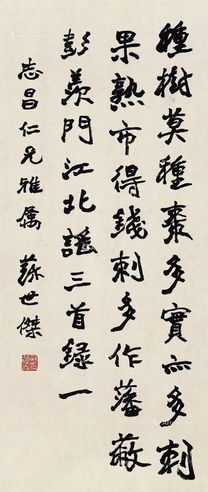 種樹莫種棗多實亦多刺
果熟市得錢刺多作藩蔽
彭羨門江北謠三首錄一
志昌仁兄雅屬 蘇世傑